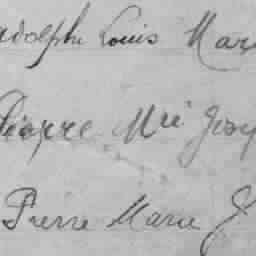 adolphe Louis Mar
Pierre Mie Jos
Pierre Marie J